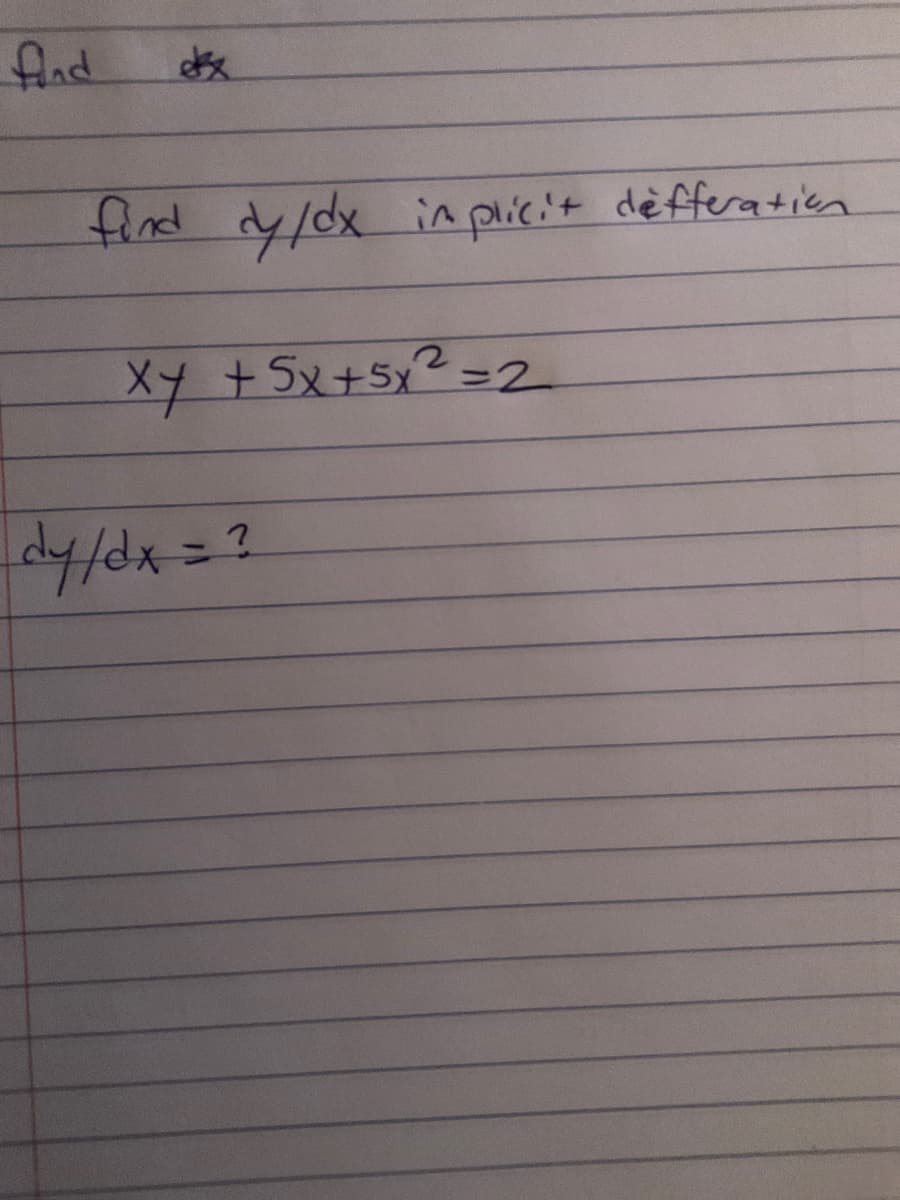 find dx
find dy/dx inplicit défferatien
xy + 5x+5x² =2
dy/dx = ?